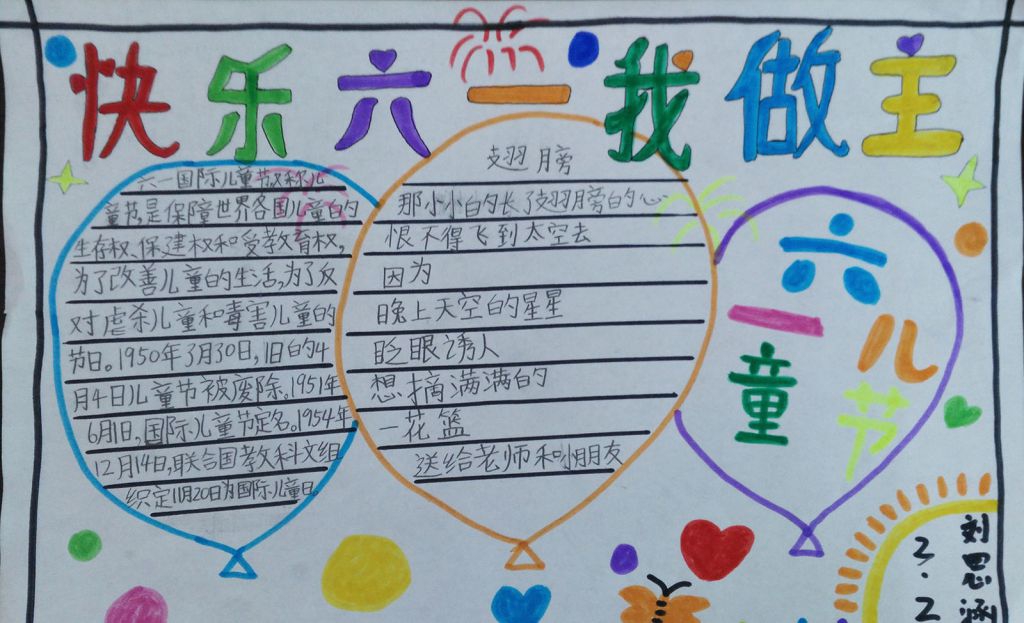 快乐六一我做主
六一国际儿童节又称儿
童节,是保障世界各国儿童的
生存权、保建权和受教育权,
为了改善儿童的生活,为了反
对虐杀儿童和毒害儿童的
节日。1950年3月30日,旧的4
月4日儿童节被废除。1951年
6月1日,国际儿童节定名。1954年
12月14日,联合国教科文组
织定11月20日为国际儿童日。
翅膀
那小小白的长了翅膀的心
恨不得飞到太空去
因为
晚上天空的星星
眨眼诱人
想摘满满的
一花篮
送给老师和小朋友
六
一儿
童节
刘思涵
3.2